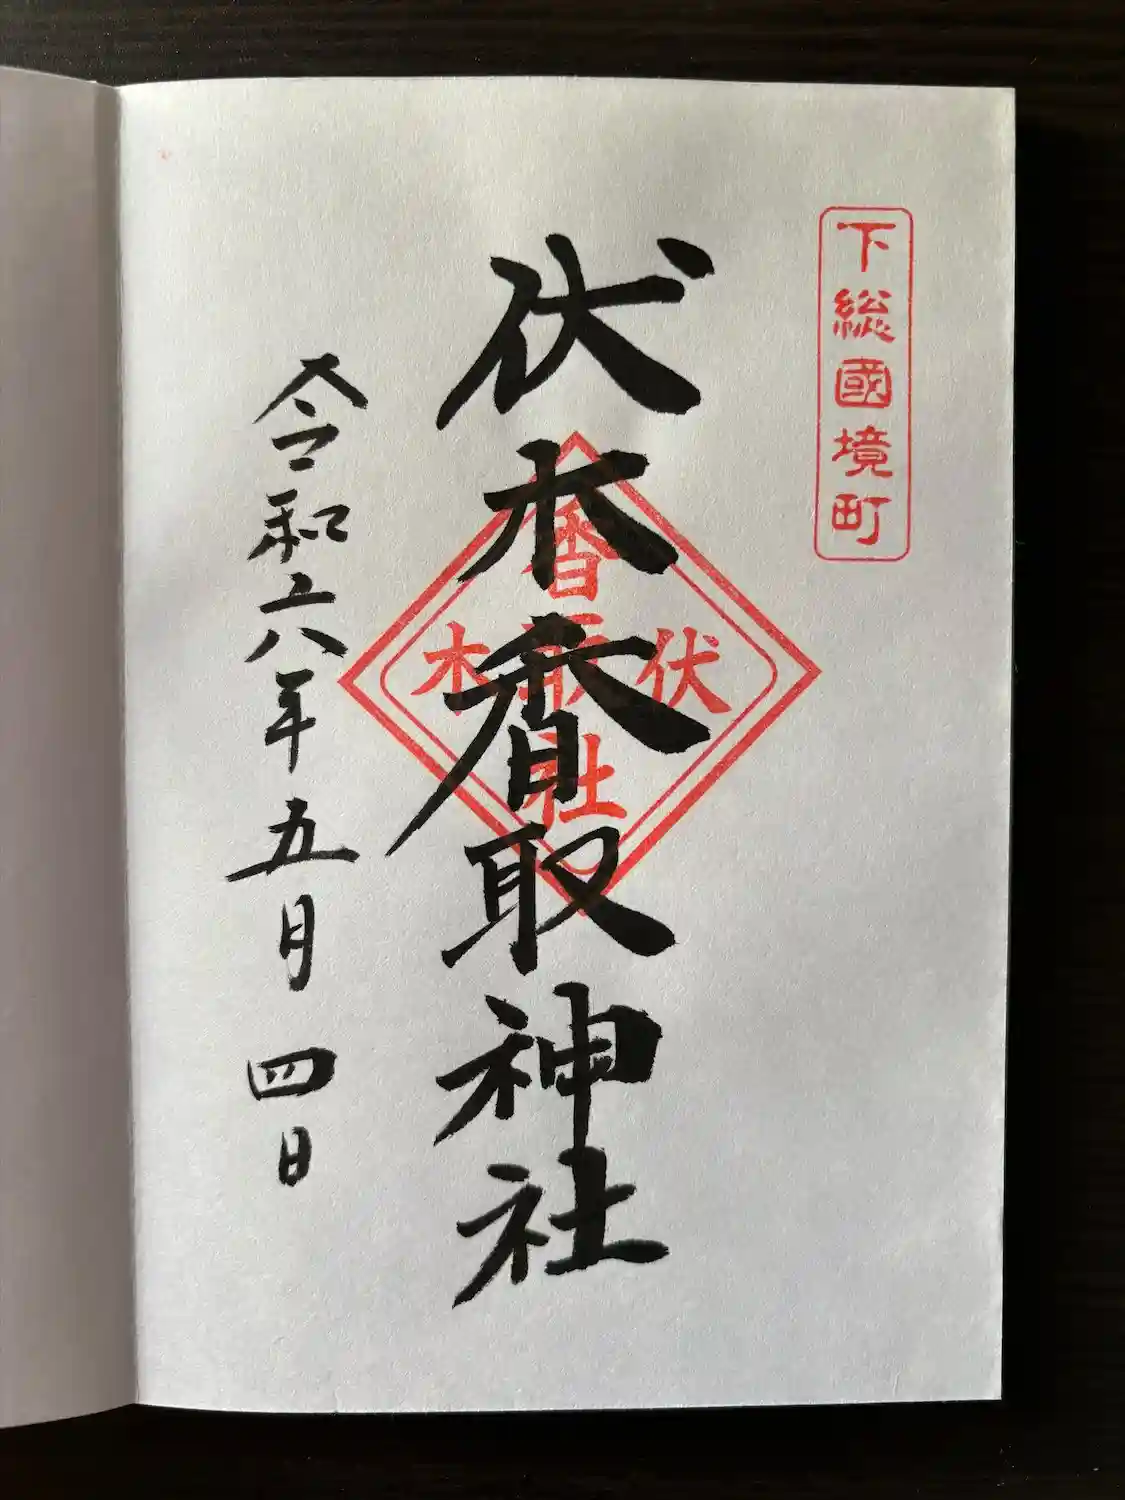 下総國境町
伏木香取神社
香取社
伏木
令和六年五月四日